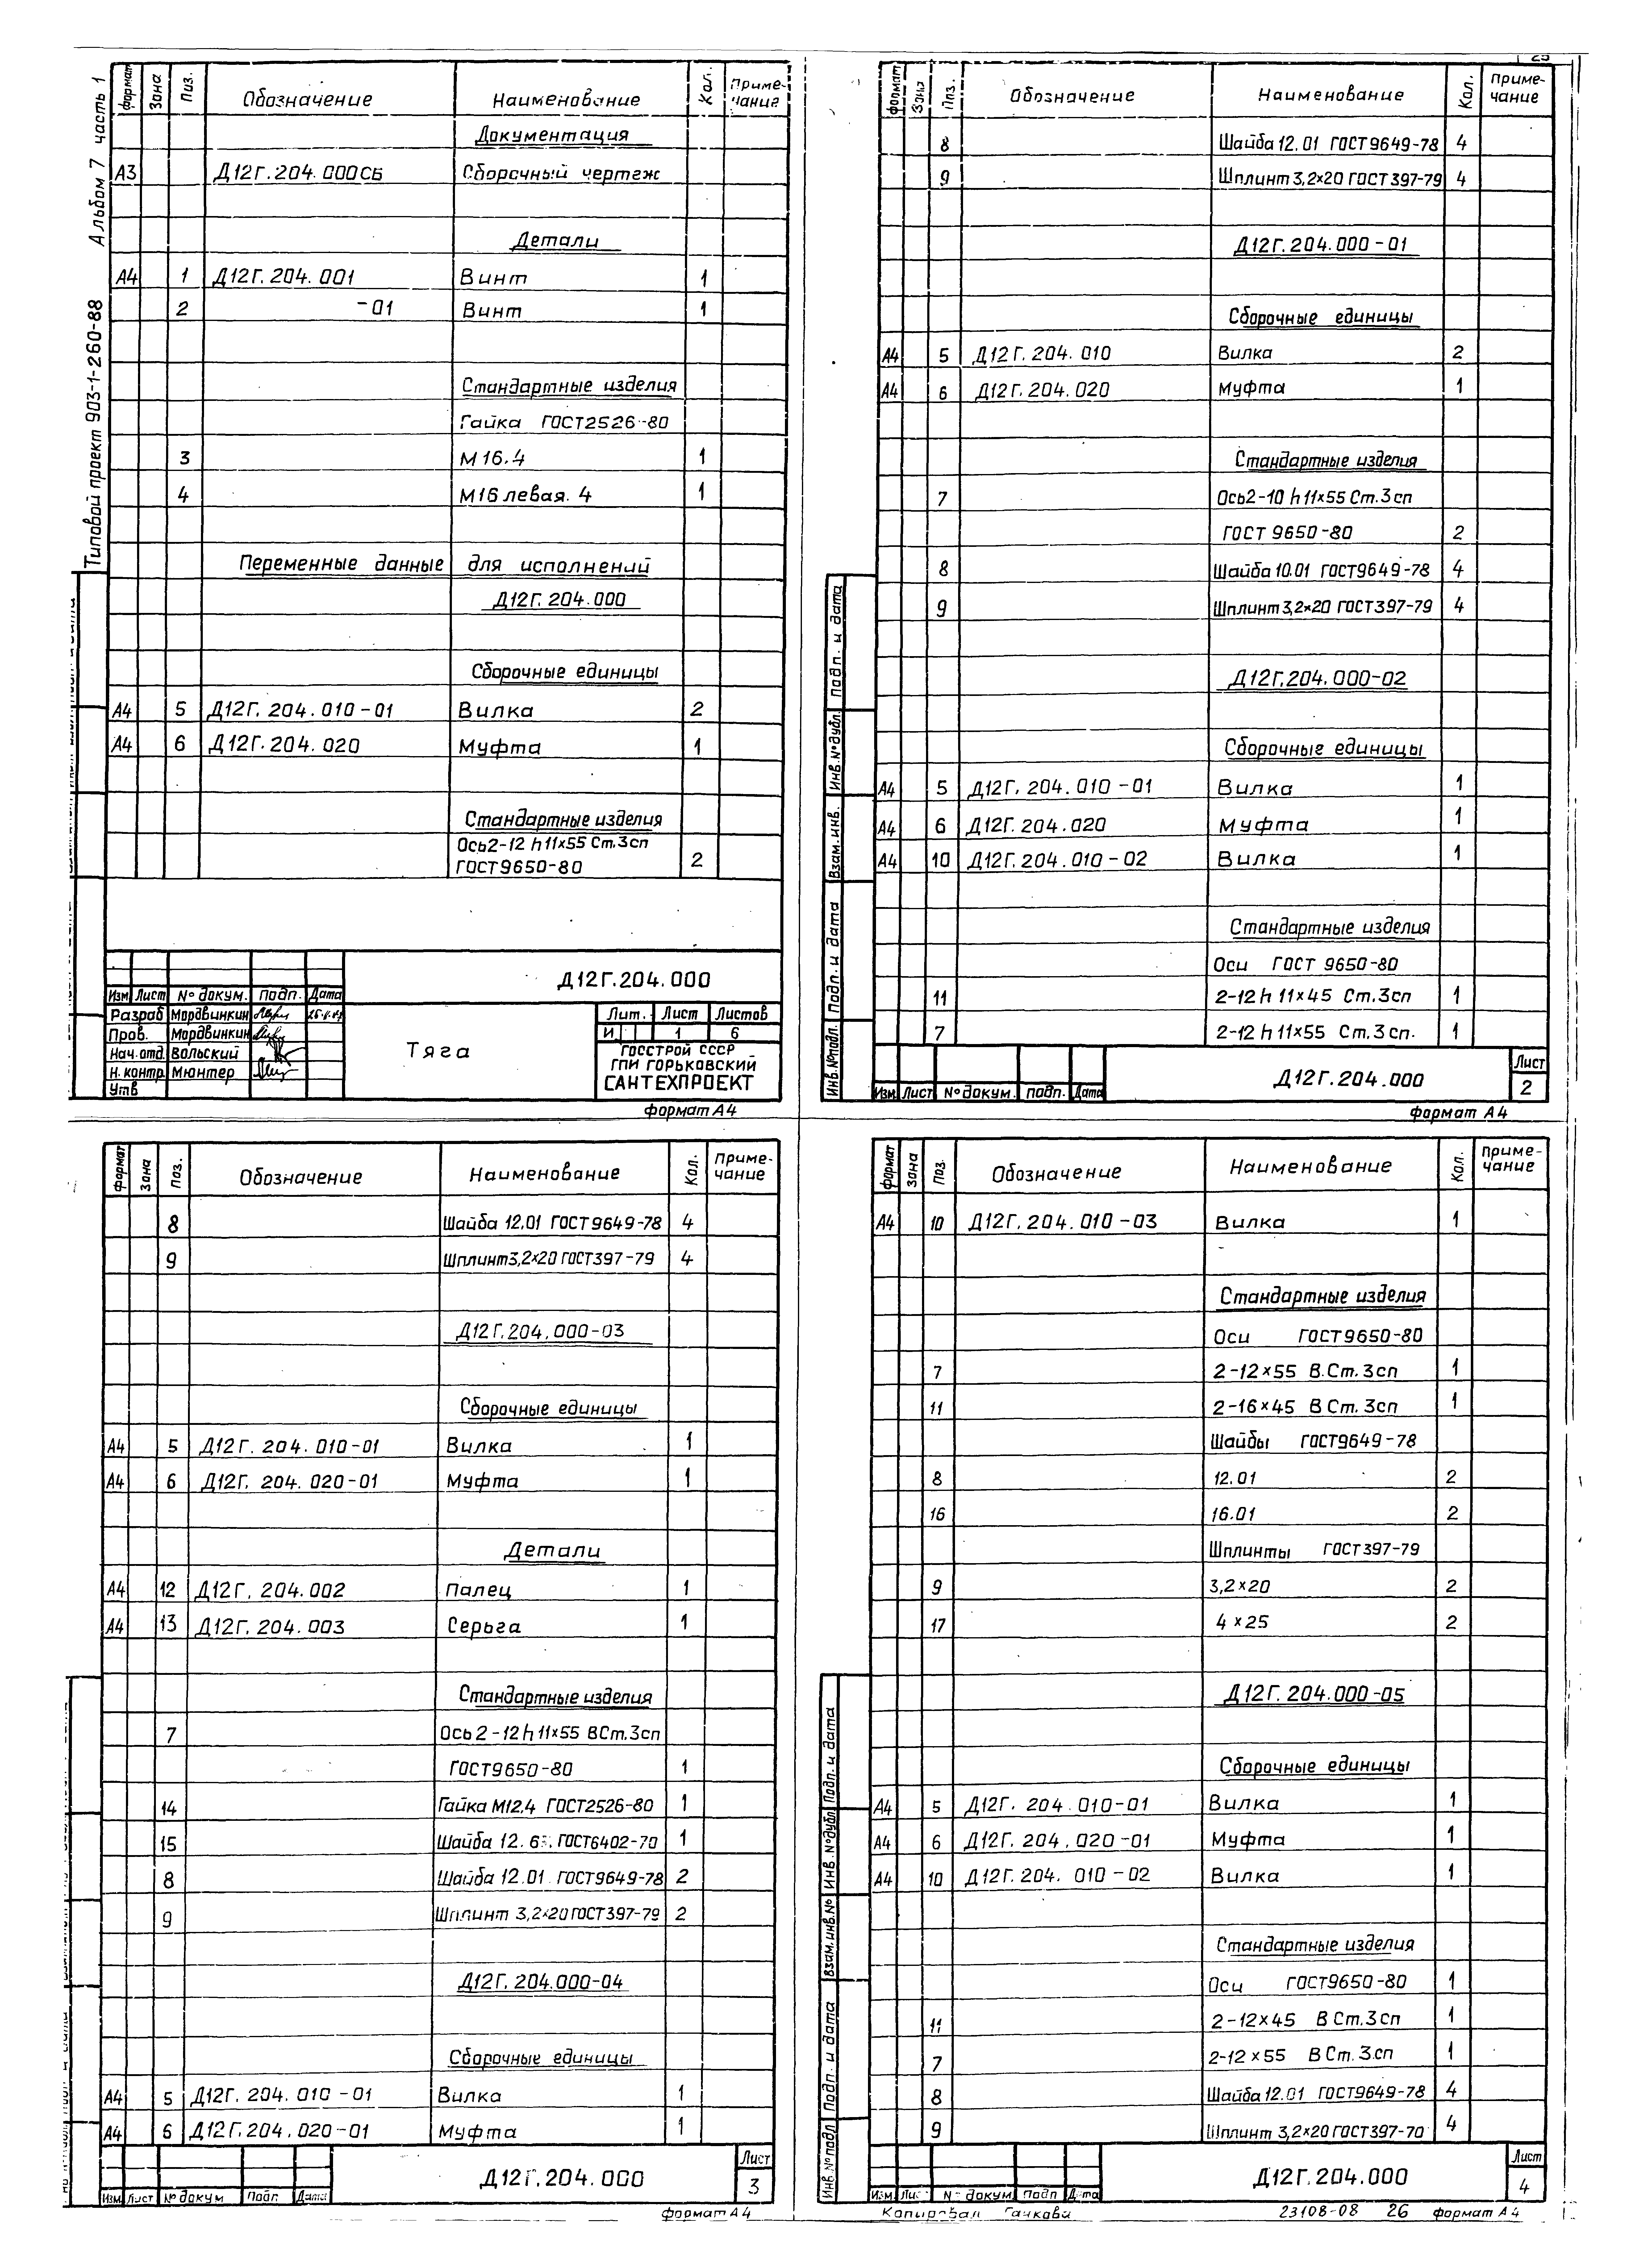 Альбом 7 часть 1
Типовой проект 903-1-260-88
формат Зона Поз. Обозначение Наименование Кол. Приме-
чание
Документация
А3 Д12Г.204.000СБ Сборочный чертеж
Детали
А4 1 Д12Г.204.001 Винт 1
2 -01 Винт 1
Стандартные изделия
Гайка ГОСТ2526-80
3 М16.4 1
4 М16 левая.4 1
Переменные данные для исполнений
Д12Г.204.000
Сборочные единицы
А4 5 Д12Г.204.010-01 Вилка 2
А4 6 Д12Г.204.020 Муфта 1
Стандартные изделия
Ось2-12 h11х55 Ст.3сп
ГОСТ9650-80 2
Д12Г.204.000
Изм Лист № докум. Подп. Дата
Разраб Мордвинкин
Пров. Мордвинкин
Нач.отд. Вольский
Н.контр. Мюнтер
Утв
Тяга
Лит. Лист Листов
И 1 6
ГОССТРОЙ СССР
ГПИ ГОРЬКОВСКИЙ
САНТЕХПРОЕКТ
формат А4
формат Зона Поз. Обозначение Наименование Кол. Приме-
чание
8 Шайба 12.01 ГОСТ9649-78 4
9 Шплинт 3,2х20 ГОСТ397-79 4
Д12Г.204.000-01
Сборочные единицы
А4 5 Д12Г.204.010 Вилка 2
А4 6 Д12Г.204.020 Муфта 1
Стандартные изделия
7 Ось2-10 h11х55 Ст.3сп
ГОСТ 9650-80 2
8 Шайба 10.01 ГОСТ9649-78 4
9 Шплинт 3,2х20 ГОСТ397-79 4
Д12Г.204.000-02
Сборочные единицы
А4 5 Д12Г.204.010-01 Вилка 1
А4 6 Д12Г.204.020 Муфта 1
А4 10 Д12Г.204.010-02 Вилка 1
Стандартные изделия
Оси ГОСТ 9650-80
11 2-12 h 11х45 Ст.3сп 1
7 2-12 h 11х55 Ст.3сп. 1
Инв.№подл. Подп. и дата Взам.инв. Инв.№дубл. Подп. и дата
Изм. Лист № докум. подп. Дата
Д12Г.204.000
Лист
2
формат А4
формат Зона Поз. Обозначение Наименование Кол. Приме-
чание
8 Шайба 12.01 ГОСТ9649-78 4
9 Шплинт3,2х20 ГОСТ397-79 4
Д12Г.204.000-03
Сборочные единицы
А4 5 Д12Г.204.010-01 Вилка 1
А4 6 Д12Г.204.020-01 Муфта 1
Детали
А4 12 Д12Г.204.002 Палец 1
А4 13 Д12Г.204.003 Серьга 1
Стандартные изделия
7 Ось 2-12 h 11х55 ВСт.3сп
ГОСТ9650-80 1
14 Гайка М12.4 ГОСТ2526-80 1
15 Шайба 12. ГОСТ6402-70 1
8 Шайба 12.01 ГОСТ9649-78 2
9 Шплинт 3,2х20 ГОСТ397-79 2
Д12Г.204.000-04
Сборочные единицы
А4 5 Д12Г.204.010-01 Вилка 1
А4 6 Д12Г.204.020-01 Муфта 1
Изм. Лист № докум Подп. Дата
Д12Г.204.000
Лист
3
формат А4
формат Зона Поз. Обозначение Наименование Кол. Приме-
чание
А4 10 Д12Г.204.010-03 Вилка 1
Стандартные изделия
Оси ГОСТ9650-80
7 2-12х55 В.Ст.3сп 1
11 2-16х45 В Ст.3сп 1
Шайбы ГОСТ9649-78
8 12.01 2
16 16.01 2
Шплинты ГОСТ397-79
9 3,2х20 2
17 4х25 2
Д12Г.204.000-05
Сборочные единицы
А4 5 Д12Г.204.010-01 Вилка 1
А4 6 Д12Г.204.020-01 Муфта 1
А4 10 Д12Г.204.010-02 Вилка 1
Стандартные изделия
Оси ГОСТ9650-80 1
11 2-12х45 В Ст.3сп 1
7 2-12х55 В Ст.3.сп 1
8 Шайба 12.01 ГОСТ9649-78 4
9 Шплинт 3,2х20 ГОСТ397-70 4
Инв.№подл Подп. и дата Взам.инв.№ Инв.№дубл. Подп. и дата
Изм. докум. подп Дата
Д12Г.204.000
Лист
4
23108-08 26 формат А4